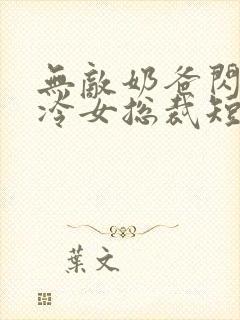 無敵奶爸閃
冷女总裁短
葉文